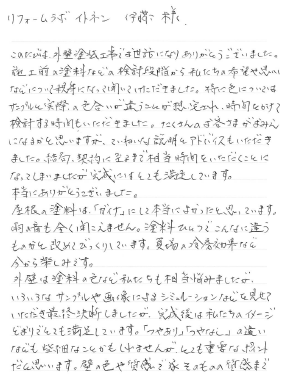 リフォームラボ イトネン 伊藤 様.
このたびは、外壁塗装工事でお世話になりありがとうございました。
施工前の塗料などの検討段階から 私たちの希望や思い
などについて親身になって聞いていただきました。特に色については
サンプルと実際の色合いが違うことが想定され、時間をかけて
検討する時間もいただきました。たくさんのお客さまがおみえ
になるかと思いますが、ていねいな説明とアドバイスもいただき
ました。結局、契約に至るまで相当時間をいただくことに
なってしまいましたが 完成にはとても満足しています。
本当にありがとうございました。
屋根の塗料は、「ガイナ」にして本当によかったと思っています。
雨の音も全く聞こえません。塗料ひとつでこんなに違う
ものかと改めてびっくりしています。夏場の冷房効果など
今から楽しみです。
外壁は塗料の色など私たちも相当悩みましたが、
いろいろなサンプルや画像によるシミュレーションなどを見せて
いただき最終決断しましたが、完成後は私たちのイメージ
どおりでとても満足しています。「つやあり」「つやなし」の違い
なども些細なことかもしれませんが、とても重要なポイント
だと思います。壁の色や質感で家そのものの質感まで